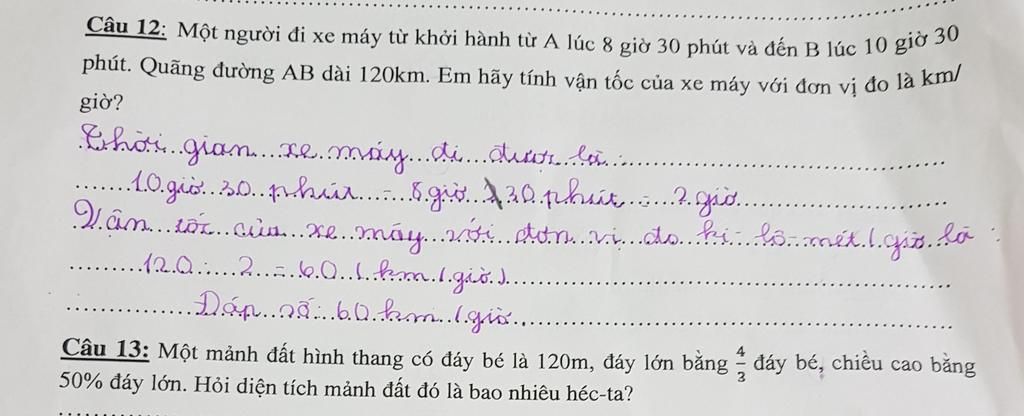 Câu 12: Một người đi xe máy từ khởi hành từ A lúc 8 giờ 30 phút và đến B lúc 10 giờ 30
phút. Quãng đường AB dài 120km. Em hãy tính vận tốc của xe máy với đơn vị đo là km/
giờ?
Thời gian xe máy đi được là:
10 giờ 30 phút - 8 giờ 30 phút = 2 giờ
Vận tốc của xe máy với đơn vị đo ki-lô-mét/giờ là:
120 : 2 = 60 (km/giờ)
Đáp số: 60 km/giờ
Câu 13: Một mảnh đất hình thang có đáy bé là 120m, đáy lớn bằng 4/3 đáy bé, chiều cao bằng
50% đáy lớn. Hỏi diện tích mảnh đất đó là bao nhiêu héc-ta?